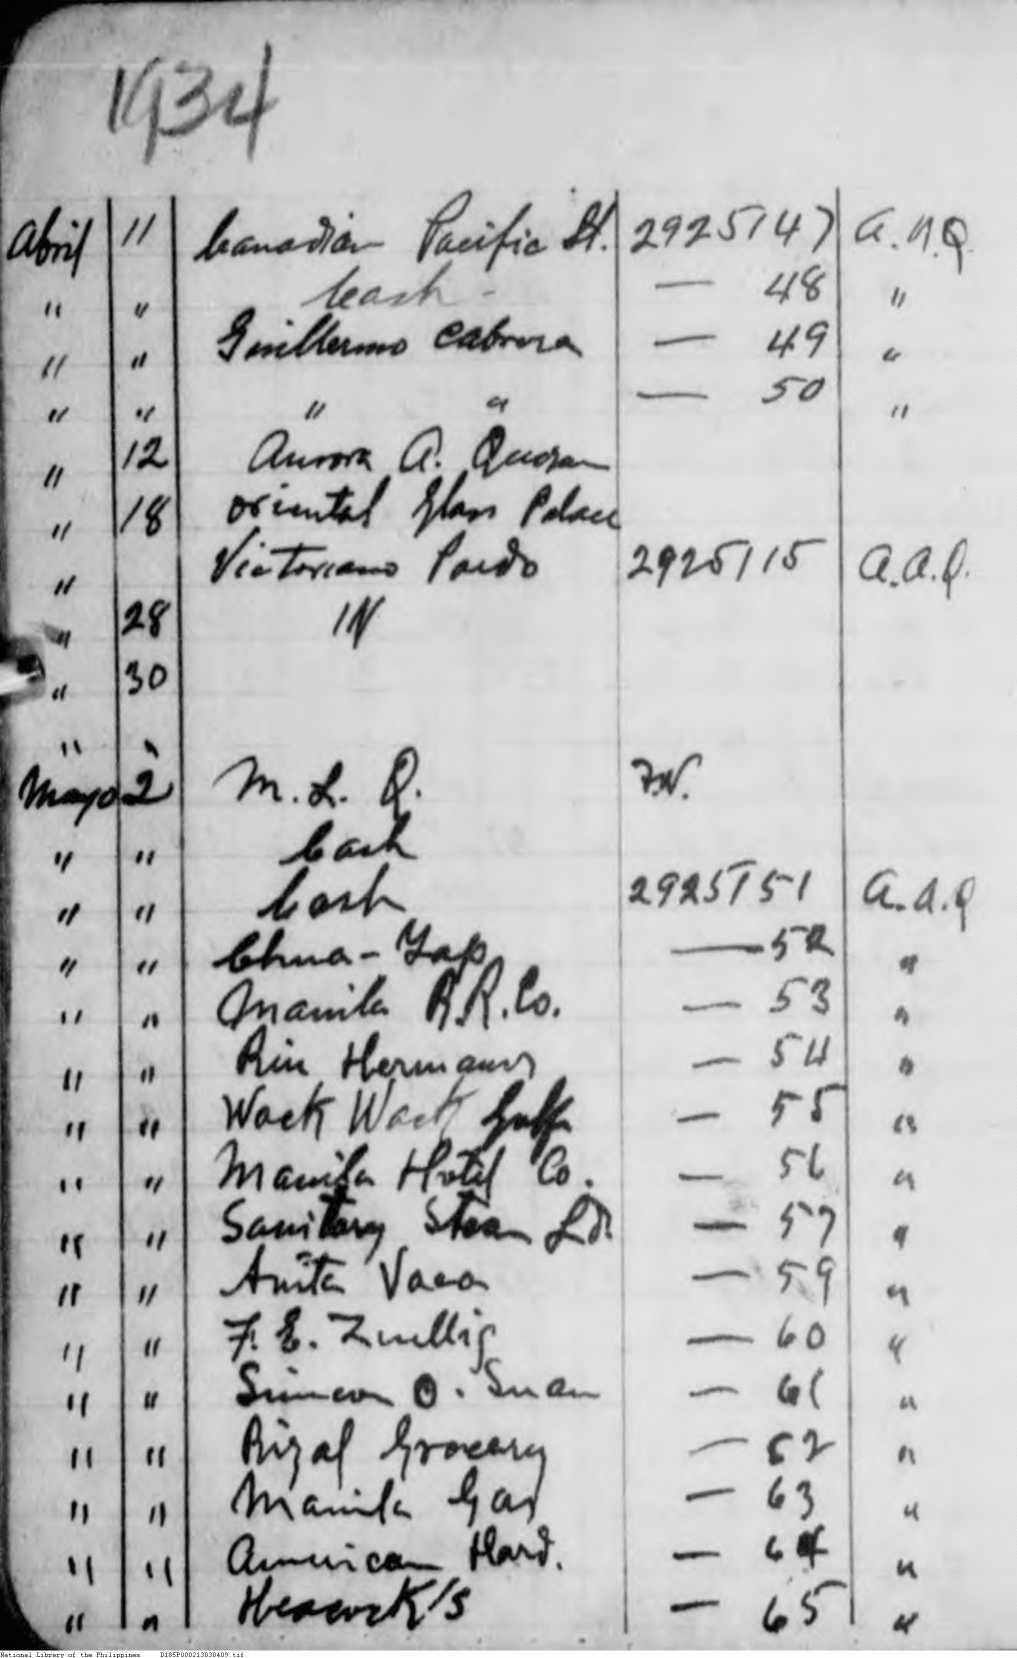 1934
Abril 11 Canadian Pacific St. 2925147 A.A.Q.
" " Cash - — 48 "
" " Guillermo Cabrera — 49 "
" " " " — 50 "
" 12 Aurora A. Quezon
" 18 Oriental Glass Palace
" Victoriano Pardo 2925115 A.A.Q.
" 28 IN
" 30
" "
Mayo 2 M. L. Q. F.N.
" " Cash
" " Cash 2925151 A.A.Q
" " Chua-Yap — 52 "
" " Manila R.R. Co. — 53 "
" " Riu Hermanos — 54 "
" " Wack Wack Golf — 55 "
" " Manila Hotel Co. — 56 "
" " Sanitary Steam Ld. — 57 "
" " Anita Vaca — 59 "
" " F. E. Zuellig — 60 "
" " Simeon O. — 61 "
" " Rizal Grocery — 62 "
" " Manila Gas — 63 "
" " American Hard. — 64 "
" " Heacock's — 65 "
National Library of the Philippines D185P000213030409.tif